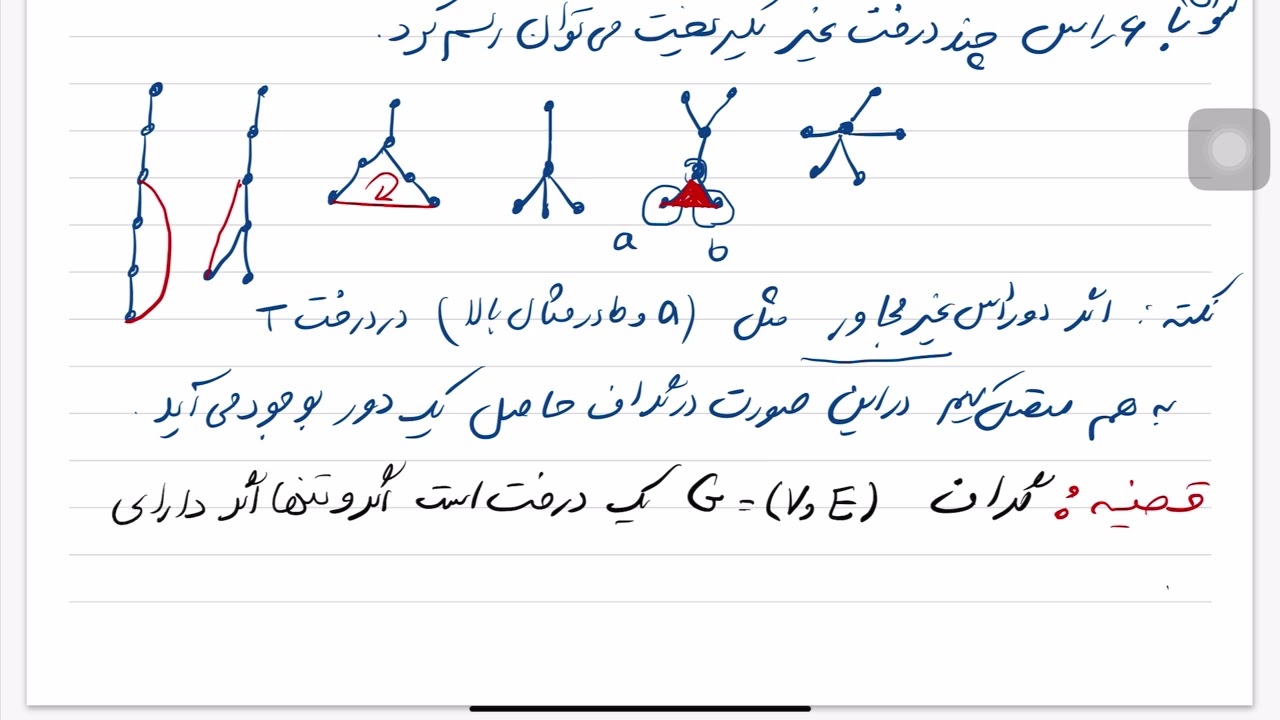 با ۶ راس چند درخت غیر یکریخت می‌توان رسم کرد.
a b
نکته: اگر دو راس غیر مجاور مثل (a و b در مثال بالا) در درخت T
به هم متصل کنیم در این صورت در گراف حاصل یک دور بوجود می‌آید.
قضیه: گراف G = (V, E) یک درخت است اگر و تنها اگر دارای